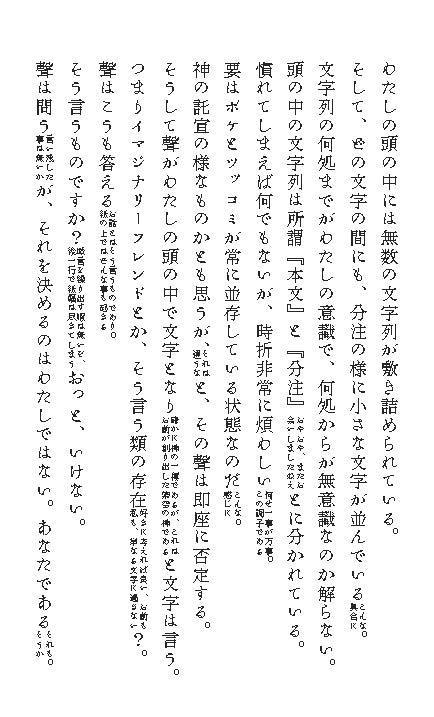 わたしの頭の中には無数の文字列が敷き詰められている。
そして、どの文字の間にも、分注の様に小さな文字が並んでいるこんな具合に。
文字列の何処までがわたしの意識で、何処からが無意識なのか解らない。
頭の中の文字列は所謂『本文』と『分注』おやおや、またお会いしましたねえとに分かれている。
慣れてしまえば何でもないが、時折非常に煩わしい何せ一事が万事この調子である。
要はボケとツッコミが常に並存している状態なのだこんな感じに。
神の託宣の様なものかとも思うが、それは違うなと、その聲は即座に否定する。
そうして聲がわたしの頭の中で文字となり確かに神の一種であるが、これはお前が創り出した架空の神であると文字は言う。
つまりイマジナリーフレンドとか、そう言う類の存在好きに考えれば良い、お前も私も、単なる文字に過ぎない？。
聲はこうも答えるお話とはそう言うものであり紙の上ではそんな事も起きる。
そう言うものですか？戯言を繰り出す暇は無いぞ、後一行で紙幅は尽きてしまうおっと、いけない。
聲は問う言い残した事は無いかが、それを決めるのはわたしではない。あなたであるそれもそうか。